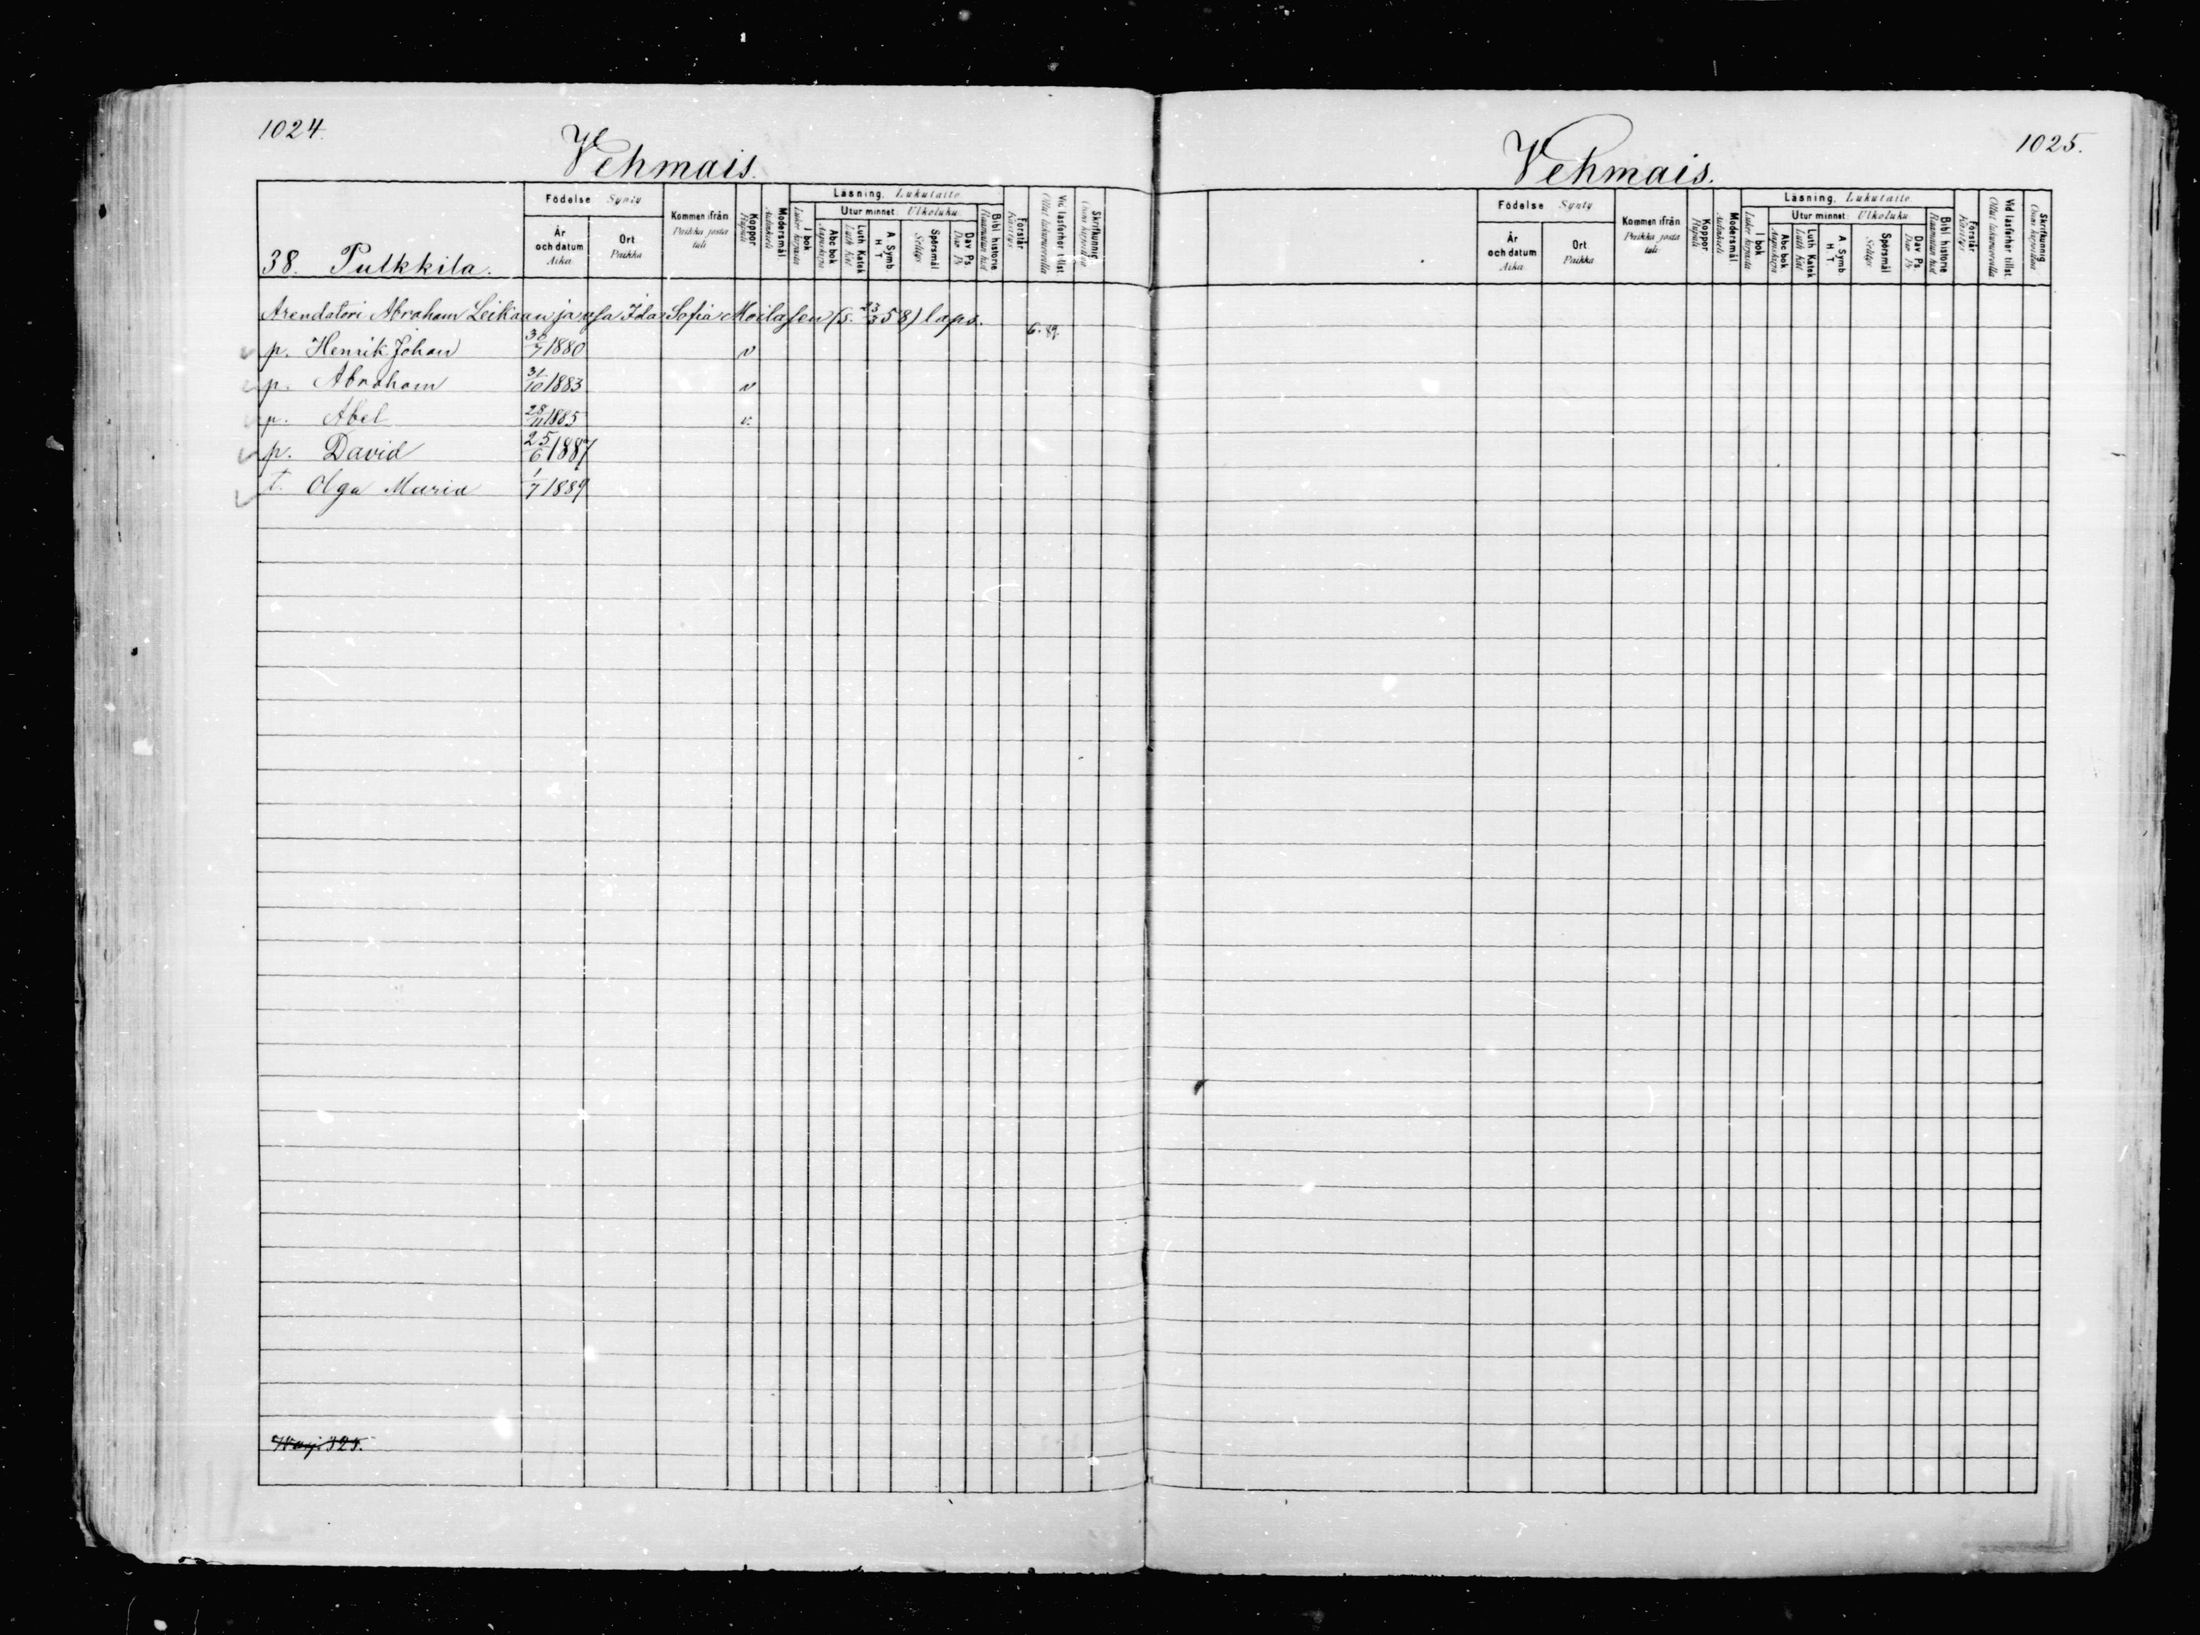 1024.
Vehmais.
Födelse Synty
Kommen ifrån Paikka josta tuli
Koppor Rupuli
Modersmål Äidinkieli
Läsning. Lukutaito
Utur minnet: Ulkoluku
I bok Lukee kirjasta
Abc bok Aapiskirja
Luth Katek Luth Kat
A. Symb H. T.
Spörsmål Selitys
Dav. Ps Dav. Ps
Bibl. historie Raamatun hist
Förstår Käsitys
Vid läsförhör tillst. Ollut lukukinkerilla
Skrifkunnig
År och datum Aika
Ort Paikka
38. Pulkkila.
Arendatori Abraham Leikaan ja vsa Ida Sofia Moilasen (s. 23/3 58) laps.
6. 89.
p. Henrik Johan 30/7 1880 v
p. Abraham 31/10 1883 v
p. Abel 28/11 1885 v.
p. David 25/6 1887
t. Olga Maria 1/7 1889
1025.
Vehmais.
Födelse Synty
Kommen ifrån Paikka josta tuli
Koppor Rupuli
Modersmål Äidinkieli
Läsning. Lukutaito
Utur minnet: Ulkoluku
I bok Lukee kirjasta
Abc bok Aapiskirja
Luth Katek Luth Kat
A. Symb H. T.
Spörsmål Selitys
Dav. Ps Dav. Ps
Bibl. historie Raamatun hist
Förstår Käsitys
Vid läsförhör tillst.
Skrifkunnig
År och datum Aika
Ort Paikka